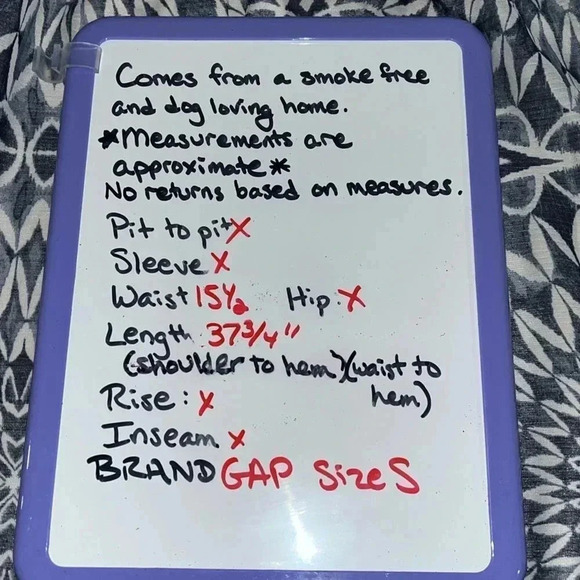 Comes from a smoke free
and dog loving home.
*Measurements are
approximate*
No returns based on measures.
Pit to pit X
Sleeve X
Waist 15 1/2 Hip: X
Length 37 3/4"
(shoulder to hem)(waist to
hem)
Rise: X
Inseam X
BRAND GAP Size S